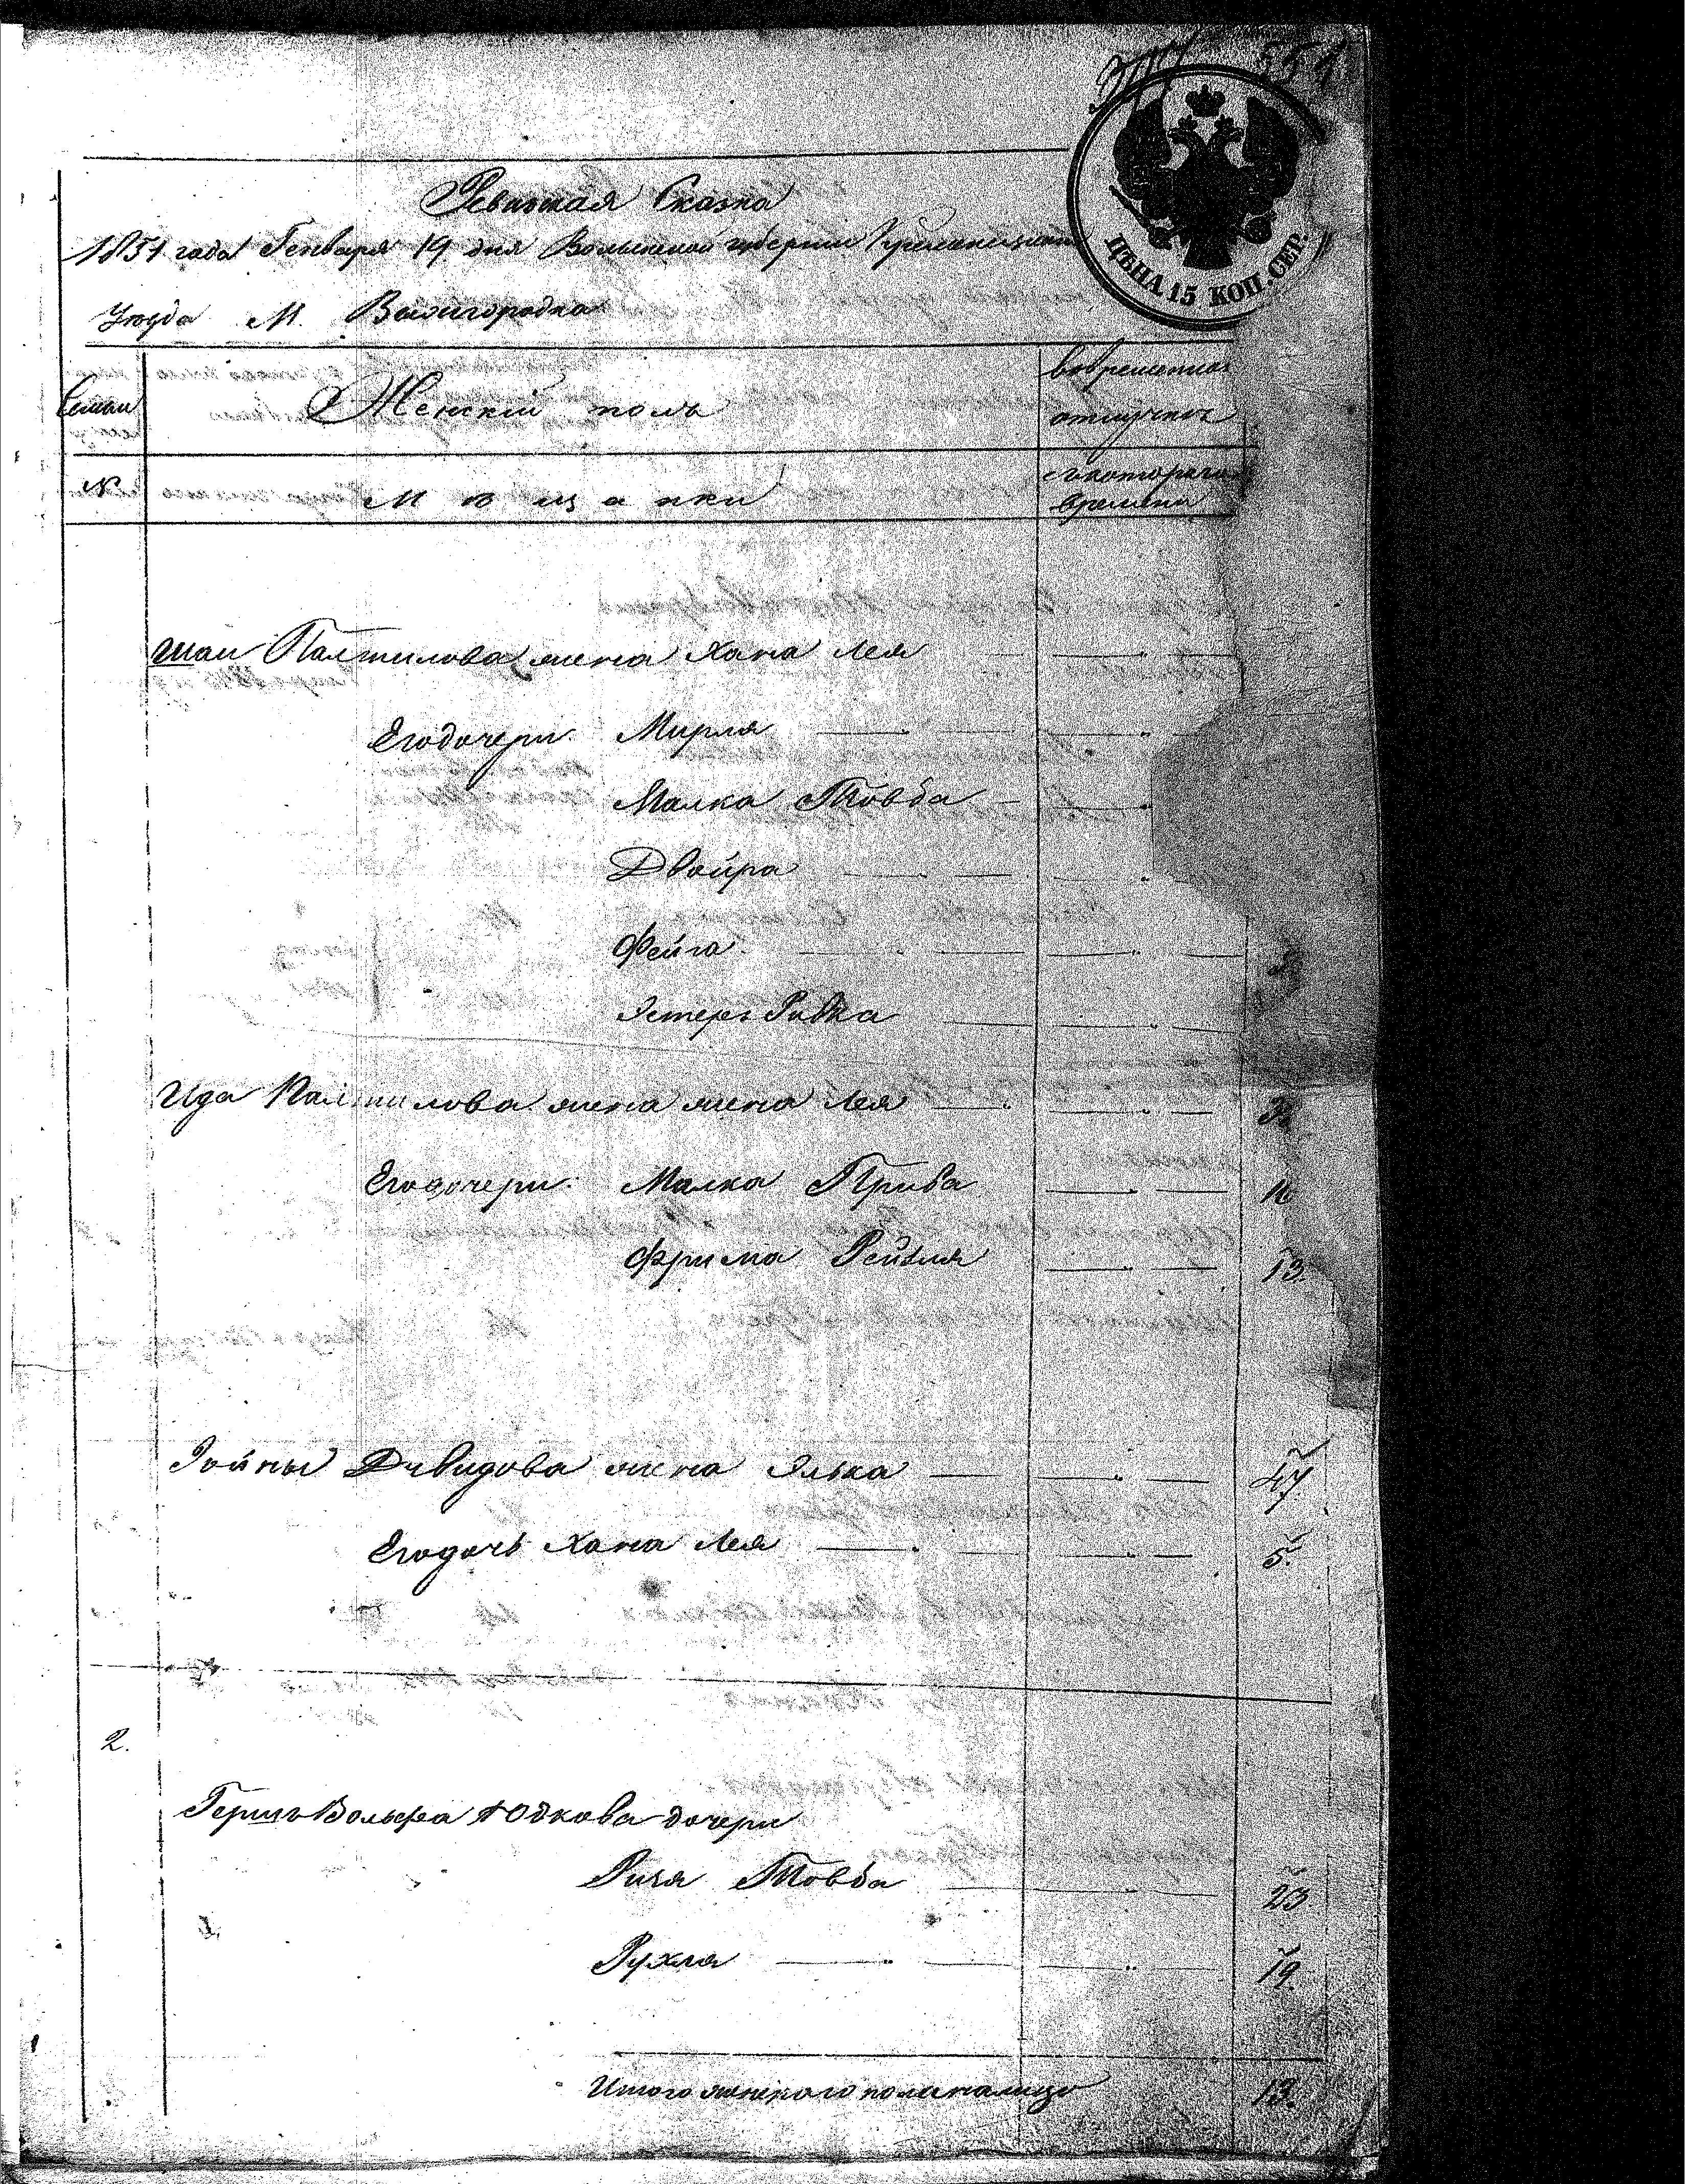 554
Ревизкая Сказка
1851 года Генваря 19 дня Волынской губернии Кременецкаго
ЦѢНА 15 КОП. СЕР.
Уезда М. Вышгородка
Семьи Женскій полъ вовременной отлучкѣ
№ Мѣщанки съкотораго времени
Шаи Палтилова жена Хана Лея
Егодочери Мирля
Малка Товба
Двойра
Фейга
Эстеръ Ривка
Ида Палтилова жена жена Лея
Егодочери Малка Прива 16
Фрима Рейзля 13.
Іойны Давидова жена Элька 47
Егодочь Хана Лея 5.
2.
Гершъ Вольфа Юдкова дочери
Рися Товба 23.
Рухля 19.
Итого женскаго поланалицо 13.